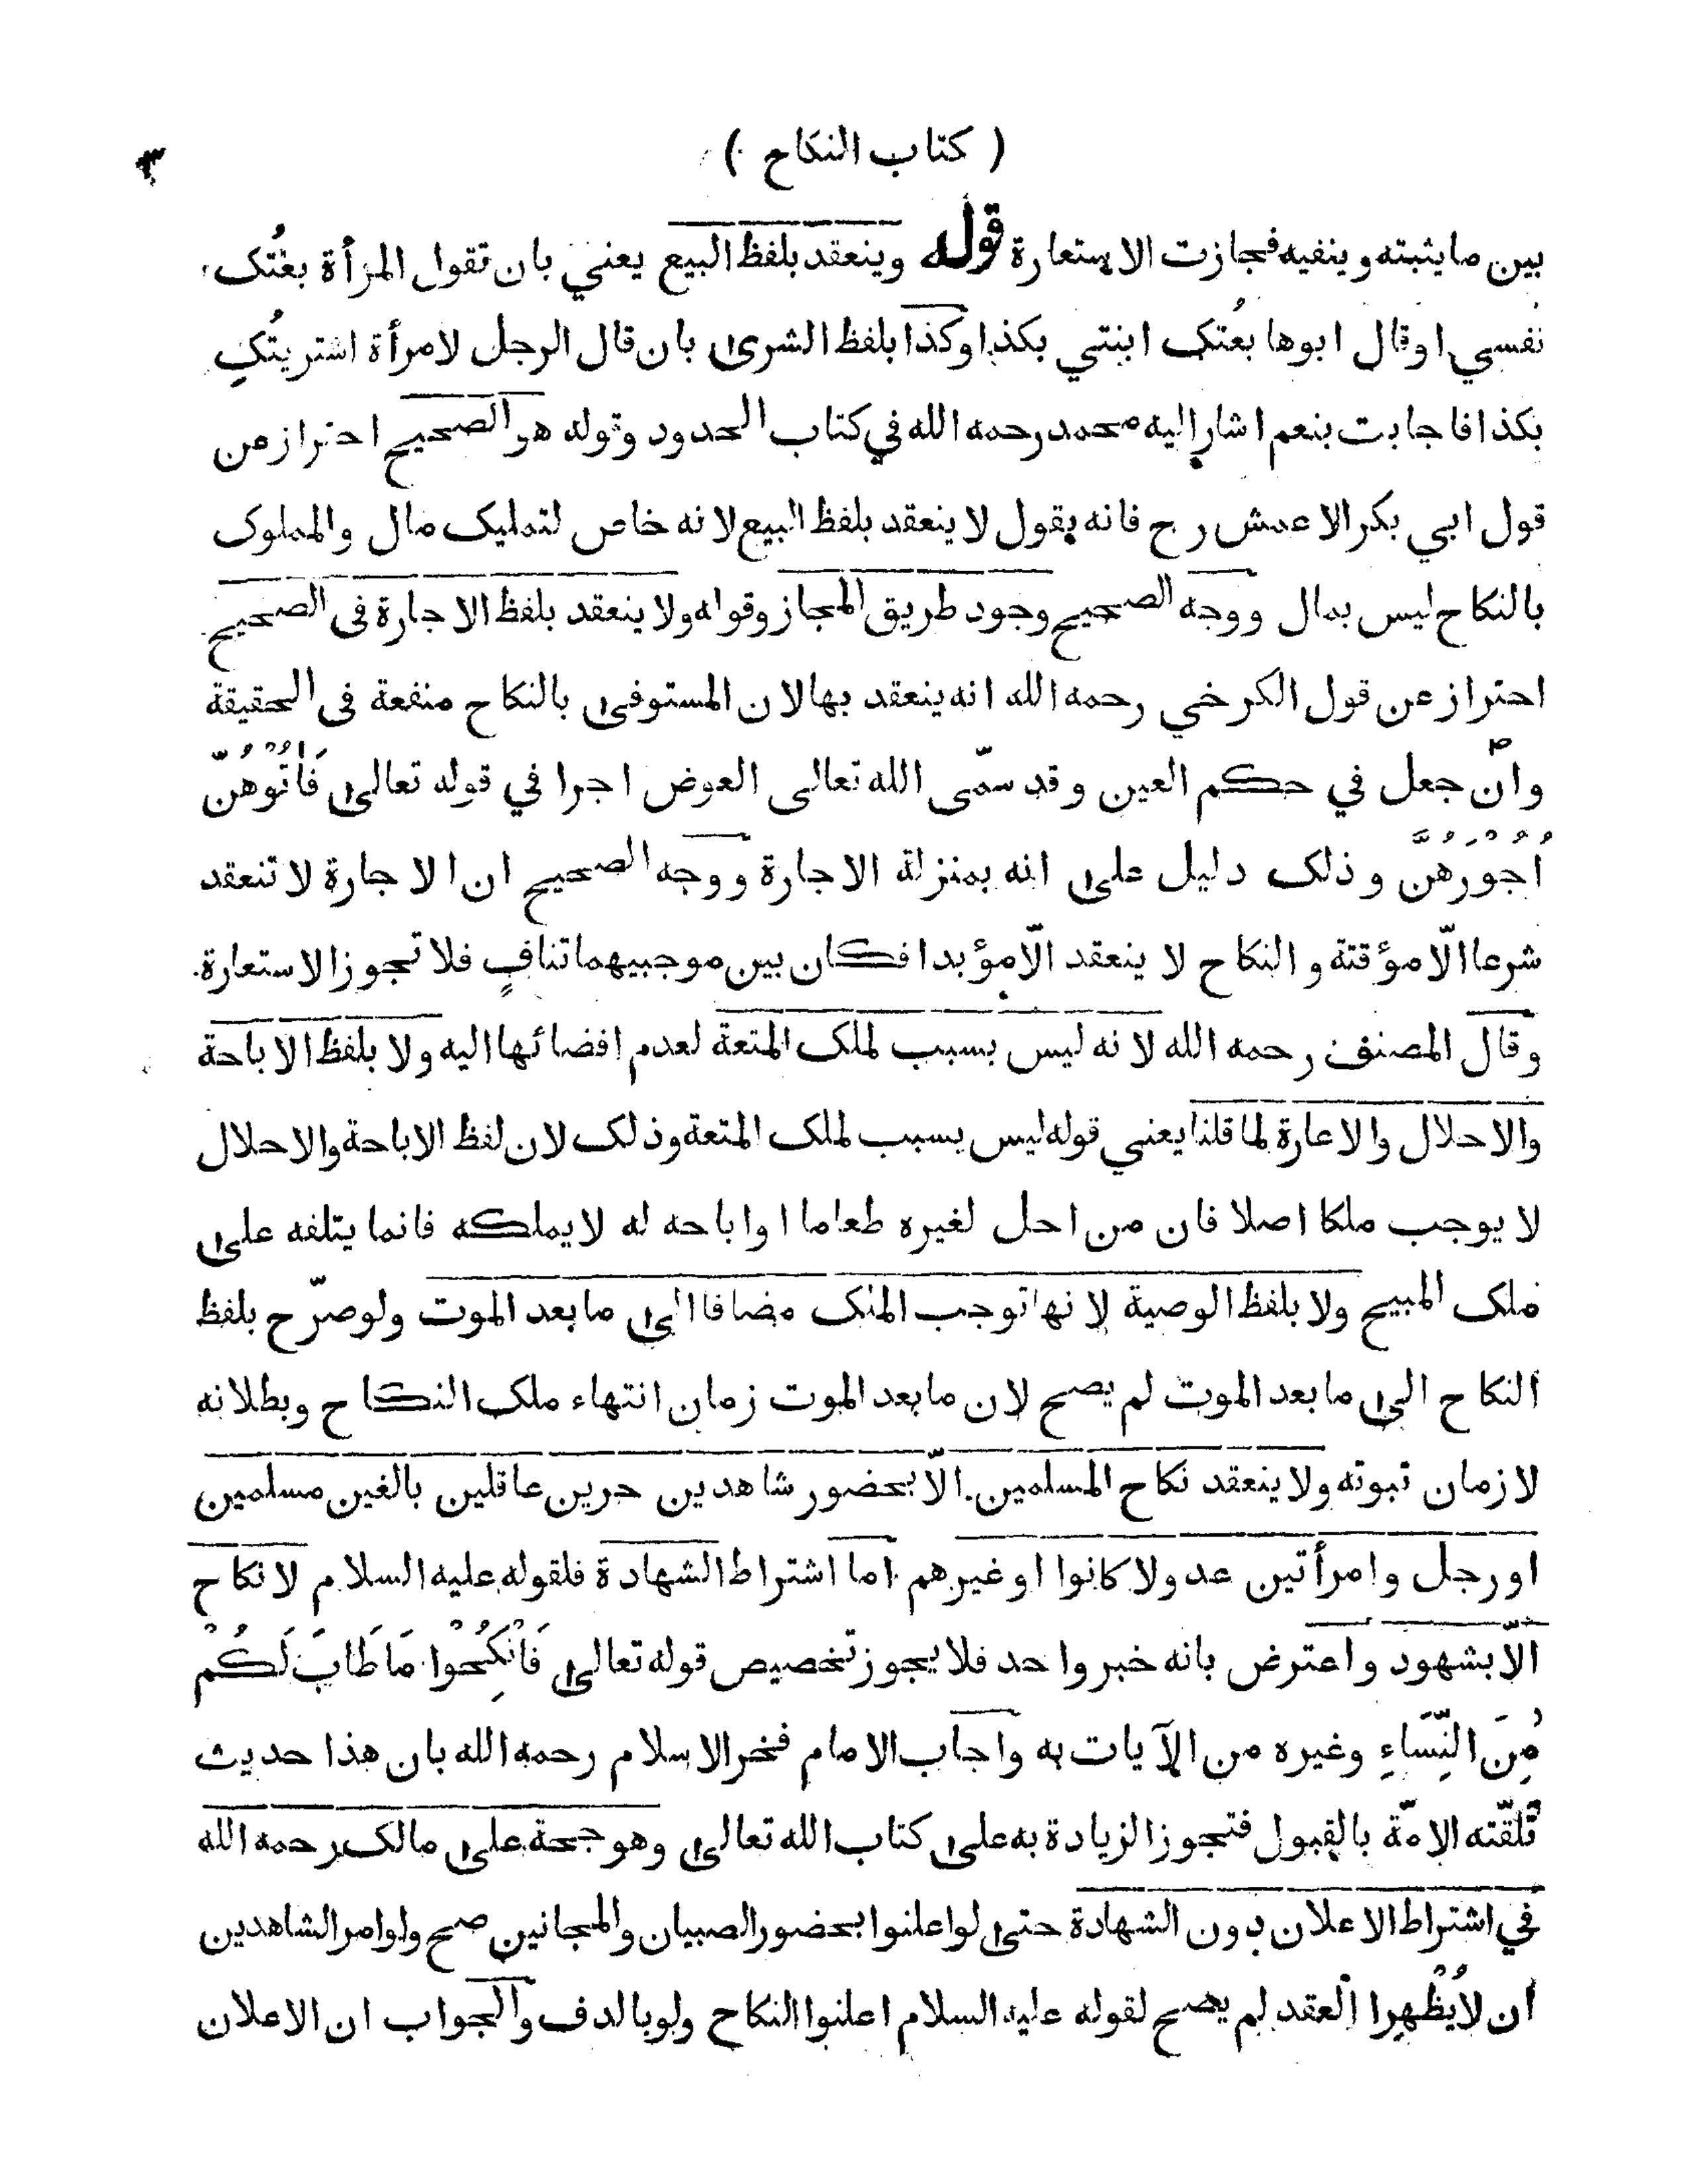 ( كتاب النكاح )
٣
بين ما يثبته وينفيه فجازت الاستعارة قوله وينعقد بلفظ البيع يعني بان تقول المرأة بعْتُک
نفسي او قال ابوها بعْتُک ابنتي بكذا وكذا بلفظ الشرى بان قال الرجل لامرأة اشتريتُکِ
بكذا فاجابت بنعم اشار اليه محمد رحمه الله في كتاب الحدود وقوله هو الصحيح احتراز عن
قول ابي بكر الاعمش رح فانه يقول لا ينعقد بلفظ البيع لانه خاص لتمليک مال والمملوک
بالنكاح ليس بمال ووجه الصحيح وجود طريق المجاز وقوله ولا ينعقد بلفظ الاجارة فى الصحيح
احتراز عن قول الكرخي رحمه الله انه ينعقد بها لان المستوفى بالنكاح منفعة فى الحقيقة
وان جعل في حكم العين وقد سمّى الله تعالى العوض اجرا في قوله تعالى فَاٰتُوْهُنَّ
اُجُوْرَهُنَّ وذلک دليل على انه بمنزلة الاجارة ووجه الصحيح ان الاجارة لا تنعقد
شرعا الّا مؤقتة والنكاح لا ينعقد الّا مؤبدا فكان بين موجبيهما تنافٍ فلا تجوز الاستعارة
وقال المصنف رحمه الله لانه ليس بسبب لملک المتعة لعدم افضائها اليه ولا بلفظ الاباحة
والاحلال والاعارة لما قلنا يعني قوله ليس بسبب لملک المتعة وذلک لان لفظ الاباحة والاحلال
لا يوجب ملكا اصلا فان من احل لغيره طعاما او اباحه له لا يملكه فانما يتلفه على
ملک المبيح ولا بلفظ الوصية لانها توجب الملک مضافا الى ما بعد الموت ولو صرّح بلفظ
النكاح الى ما بعد الموت لم يصح لان ما بعد الموت زمان انتهاء ملک النكاح وبطلانه
لا زمان ثبوته ولا ينعقد نكاح المسلمين الّا بحضور شاهدين حرين عاقلين بالغين مسلمين
او رجل وامرأتين عدولا كانوا او غيرهم اما اشتراط الشهادة فلقوله عليه السلام لا نكاح
الّا بشهود واعترض بانه خبر واحد فلا يجوز تخصيص قوله تعالى فَانْكِحُوْا مَا طَابَ لَكُمْ
مِنَ النِّسَاءِ وغيره من الآيات به واجاب الامام فخر الاسلام رحمه الله بان هذا حديث
تلقّته الامّة بالقبول فتجوز الزيادة به على كتاب الله تعالى وهو حجة على مالک رحمه الله
في اشتراط الاعلان دون الشهادة حتى لو اعلنوا بحضور الصبيان والمجانين صح ولو امر الشاهدين
ان لا يُظْهِرا العقد لم يصح لقوله عليه السلام اعلنوا النكاح ولو بالدف والجواب ان الاعلان